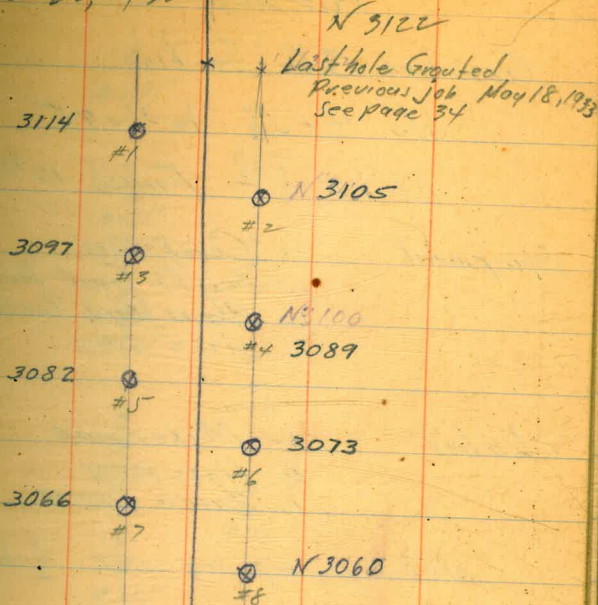 N 3122
Last hole Grouted
Previous job May 18, 1933
See page 34
3114
#1
N 3105
#2
3097
#3
N 3100
#4 3089
3082
#5
3073
#6
3066
#7
N 3060
#8